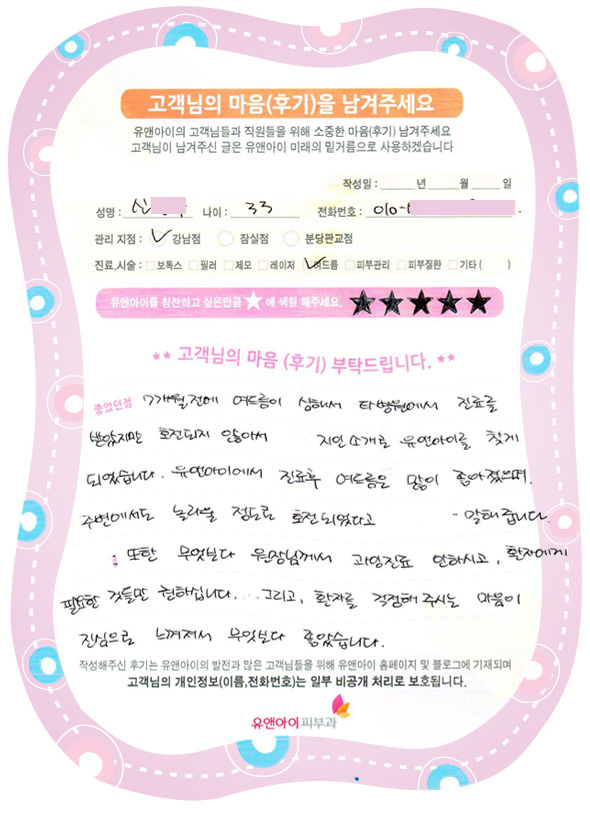 고객님의 마음(후기)을 남겨주세요
유앤아이의 고객님들과 직원들을 위해 소중한 마음(후기) 남겨주세요
고객님이 남겨주신 글은 유앤아이 미래의 밑거름으로 사용하겠습니다
작성일 : 년 월 일
성명 : 신 나이 : 33 전화번호 : 010-
관리 지점 : 강남점 잠실점 분당판교점
진료,시술 : 보톡스 필러 제모 레이저 여드름 피부관리 피부질환 기타 ( )
유앤아이를 칭찬하고 싶은만큼 ★ 에 색칠 해주세요. ★★★★★
** 고객님의 마음 (후기) 부탁드립니다. **
좋았던점 7개월전에 여드름이 심해서 타병원에서 진료를
받았지만 호전되지 않아서 지인소개로 유앤아이를 찾게
되었습니다. 유앤아이에서 진료후 여드름은 많이 좋아졌으며.
주변에서도 놀라울 정도로 호전되었다고 - 말해줍니다.
또한 무엇보다 원장님께서 과잉진료 안하시고, 환자에게
필요한 것들만 권하십니다... 그리고, 환자를 걱정해 주시는 마음이
진심으로 느껴져서 무엇보다 좋았습니다.
작성해주신 후기는 유앤아이의 발전과 많은 고객님들을 위해 유앤아이 홈페이지 및 블로그에 기재되며
고객님의 개인정보(이름,전화번호)는 일부 비공개 처리로 보호됩니다.
유앤아이피부과